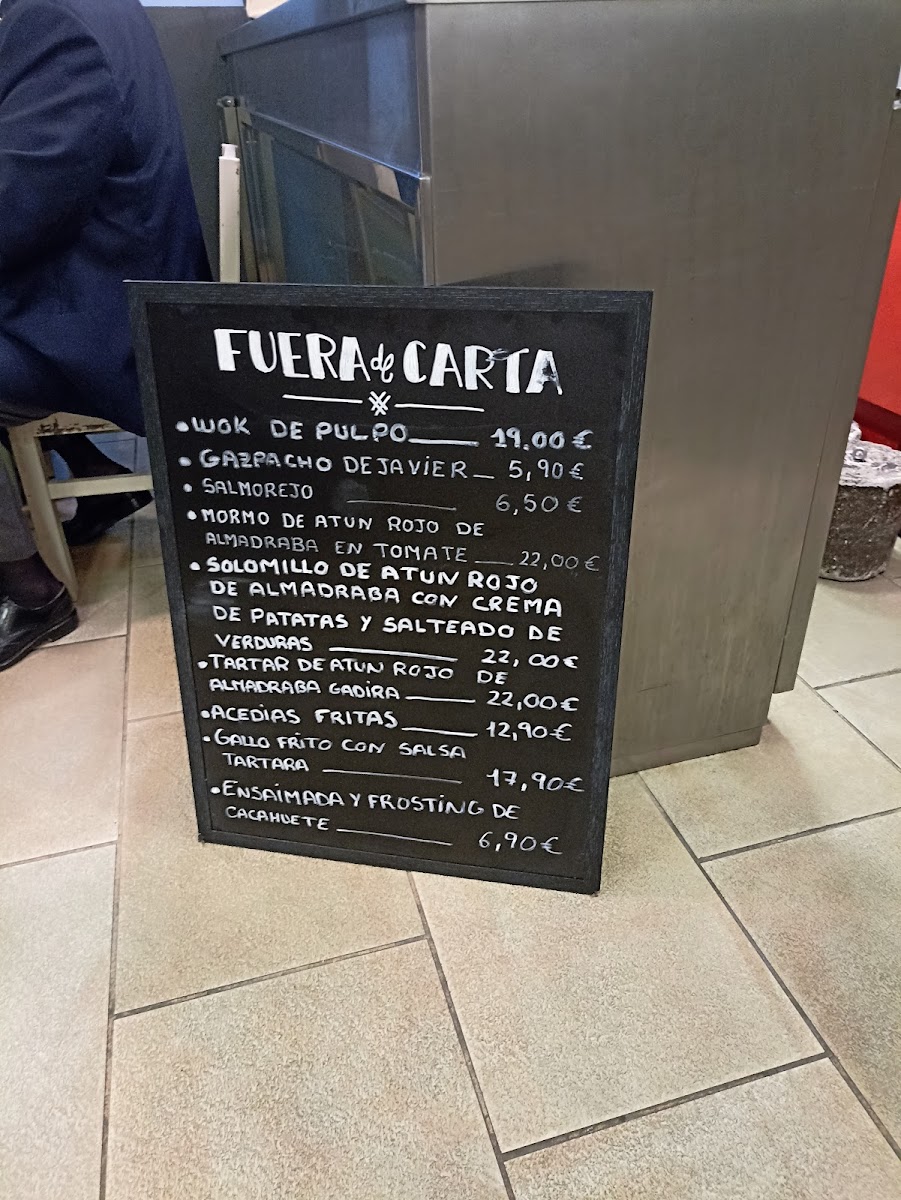 FUERA de CARTA
• WOK DE PULPO 19.00 €
• GAZPACHO DE JAVIER 5,90 €
• SALMOREJO 6,50 €
• MORMO DE ATUN ROJO DE
ALMADRABA EN TOMATE 22,00 €
• SOLOMILLO DE ATUN ROJO
DE ALMADRABA CON CREMA
DE PATATAS Y SALTEADO DE
VERDURAS 22,00 €
• TARTAR DE ATUN ROJO DE
ALMADRABA GADIRA 22,00 €
• ACEDIAS FRITAS 12,90 €
• GALLO FRITO CON SALSA
TARTARA 17,90 €
• ENSAIMADA Y FROSTING DE
CACAHUETE 6,90 €